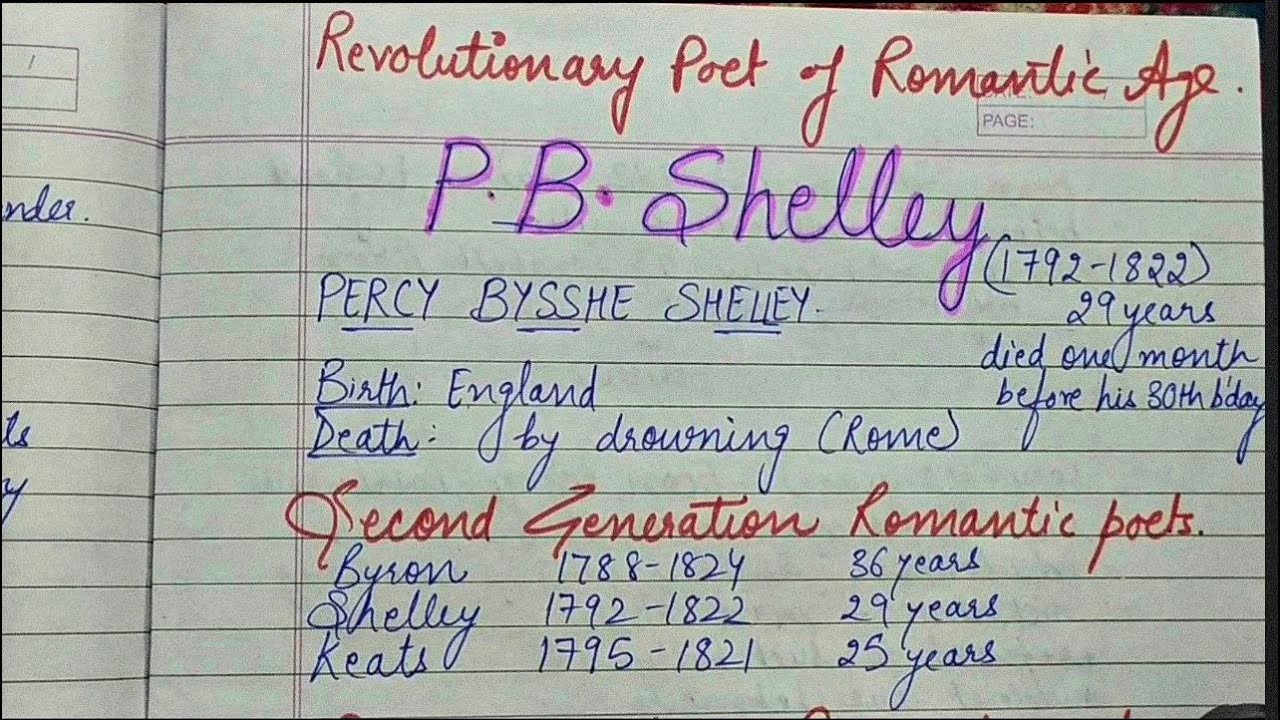 /
nder.
ls
y
Revolutionary Poet of Romantic Age.
PAGE:
P.B. Shelley
(1792-1822)
PERCY BYSSHE SHELLEY.
29 years
died one month
before his 30th b'day
Birth: England
Death: by drowning (Rome)
Second Generation Romantic poets.
Byron 1788-1824 36 years
Shelley 1792-1822 29 years
Keats 1795-1821 25 years